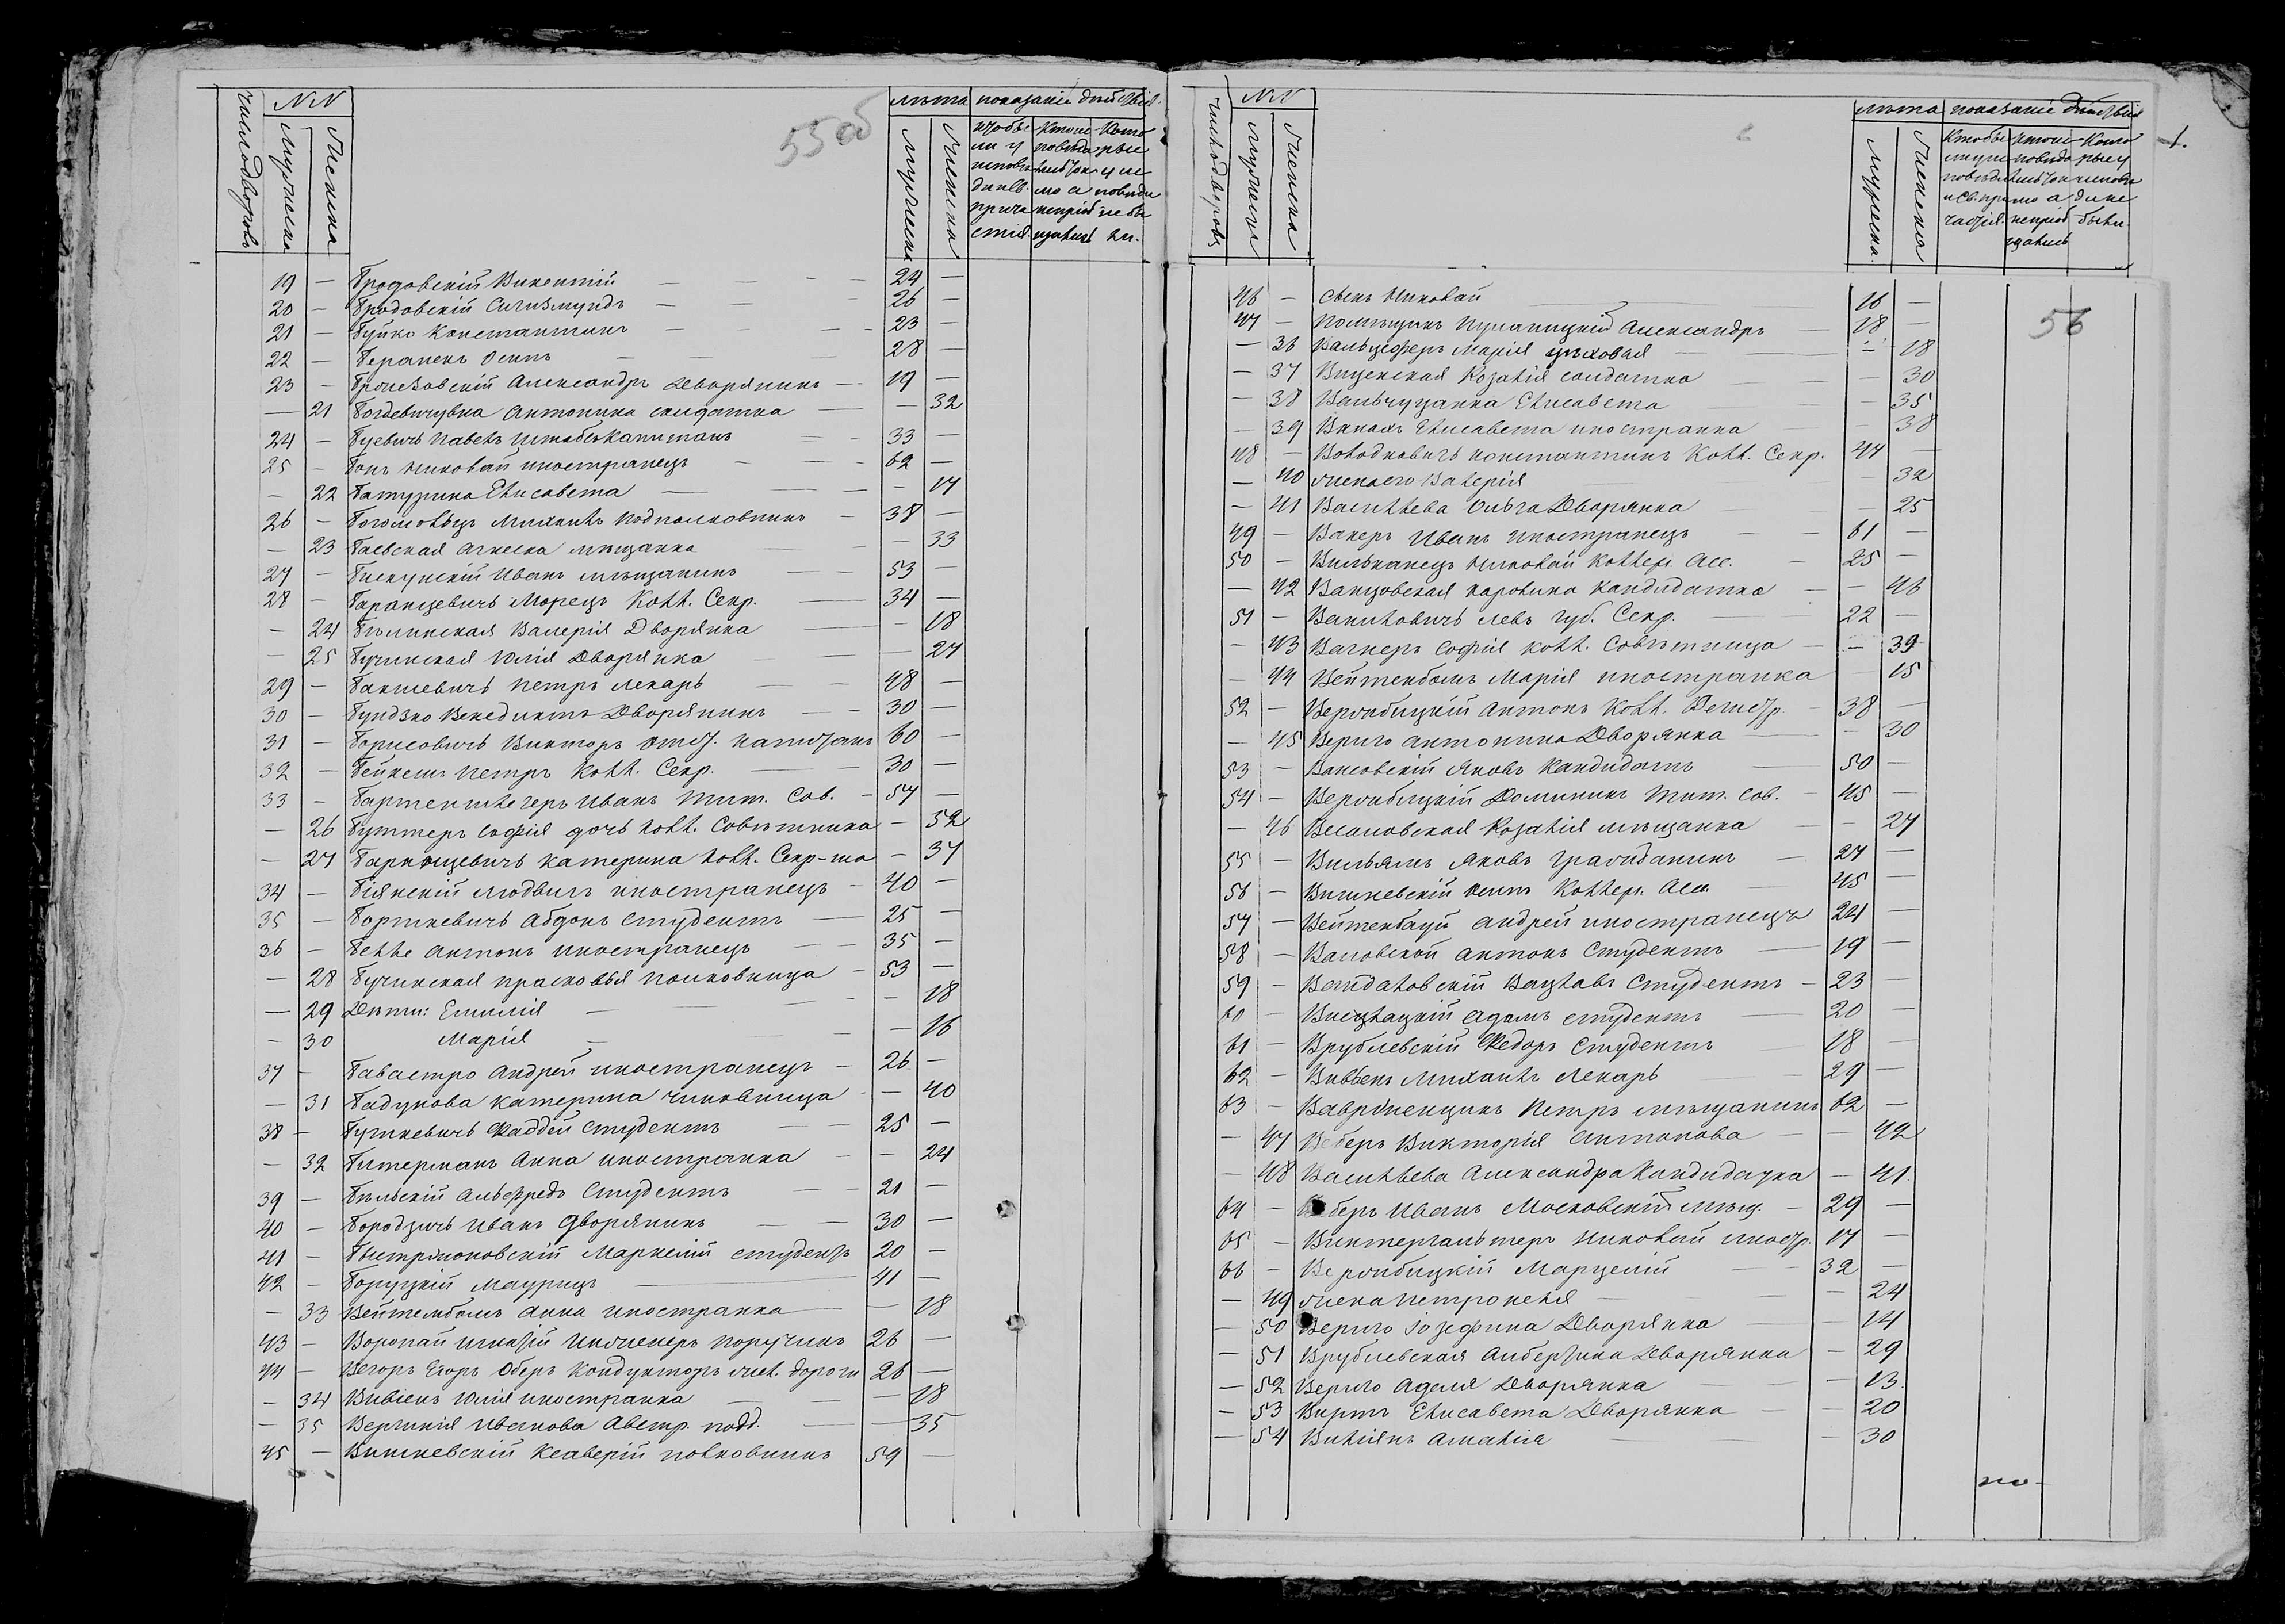 55 об
число дворовъ
NN
мужеска
женска
лѣта
мужеска
женска
показаніе дѣйствія.
19 — Бродовскій Викентій — 24 —
20 — Бродовскій Сигизмундъ — 26 —
21 — Буйко Константинъ — 23 —
22 — Осипъ — 28 —
23 — Александръ Дворянинъ — 19 —
— 21 Антонина солдатка — 32
24 — Буевичъ Павелъ Штабсъ Капитанъ — 33 —
25 — Бокъ Николай иностранецъ — 62 —
— 22 Батурина Елисавета — — 17
26 — Богомолецъ Михаилъ Подполковникъ — 38 —
— 23 Баевская Агнеска мѣщанка — 33
27 — Пискунскій Иванъ мѣщанинъ — 53 —
28 — Баранцевичъ Морецъ Колл. Секр. — 34 —
— 24 Бѣлинская Валерія Дворянка — 18
— 25 Бучинская Юлія Дворянка — 27
29 — Бакшевичъ Петръ Лекарь — 48 —
30 — Бундзко Венедиктъ Дворянинъ — 30 —
31 — Борисовичъ Викторъ отст. капитанъ 60 —
32 — Петръ Колл. Секр. — 30 —
33 — Иванъ Тит. Сов. — 57 —
— 26 Буттеръ Софія дочь колл. Совѣтника — 52
— 27 Баранцевичъ Катерина Колл. Секр-ша — 37
34 — Біянскій Людвигъ иностранецъ — 40 —
35 — Борткевичъ Абдонъ Студентъ — 25 —
36 — Белле Антонъ иностранецъ — 35 —
— 28 Бучинская Прасковья Полковница — 53 —
— 29 Дѣти: Емилія — — 18
— 30 Марія — — 16
37 — Бавастро Андрей иностранецъ — 26 —
— 31 Бадунова Катерина чиновница — 40
38 — Буткевичъ Фаддей Студентъ — 25 —
— 32 Битерманъ Анна иностранка — — 24
39 — Бѣльскій Альфредъ Студентъ — 21 —
40 — Бородзичъ Иванъ Дворянинъ — 30 —
41 — Быстржоновскій Маркелій студентъ 20 —
42 — Боруцкій Маурицъ — 41 —
— 33 Вейтембомъ Анна иностранка — 18
43 — Воропай Игнатій Инженеръ Поручикъ 26 —
44 — Вегоръ Егоръ Оберъ Кондукторъ жел. дороги 26 —
— 34 Вивіенъ Юлія иностранка — 18
— 35 Вергинія Иванова Австр. подд. — 35
45 — Вишневскій Ксаверій полковникъ 59 —
1.
56
число дворовъ
NN
мужеска
женска
лѣта
мужеска
женска
показаніе дѣйствія
46 — Сынъ Николай — 16 —
47 — Помѣщикъ Александръ — 18 —
— 36 Марія цеховая — — 18
— 37 Розалія солдатка — 30
— 38 Вальчуцанка Елисавета — 35
— 39 Елисавета иностранка — 38
48 — Володковичъ Константинъ Колл. Секр. 47 —
— 40 жена его Валерія — 32
— 41 Васильева Ольга Дворянка — 25
49 — Вагнеръ Иванъ иностранецъ — 61 —
50 — Вильканецъ Николай Коллеж. Асс. — 25 —
— 42 Ванцовская Каролина Кандидатка — — 46
51 — Ваньковичъ Левъ Губ. Секр. — 22 —
— 43 Вагнеръ Софія колл. Совѣтница — — 39
— 44 Вейтенбомъ Марія иностранка — 15
52 — Вержбицкій Антонъ Колл. Регистр. — 38 —
— 45 Вериго Антонина Дворянка — — 30
53 — Ваковскій Яковъ Кандидатъ — 50 —
54 — Вержбицкій Доминикъ Тит. Сов. — 45 —
— 46 Розалія мѣщанка — — 27
55 — Вильямъ Яковъ гражданинъ — 27 —
56 — Вишневскій Осипъ Коллеж. Асс. — 45 —
57 — Вейтенбаум Андрей иностранецъ 24 —
58 — Антонъ Студентъ — 19 —
59 — Вайдаловскій Вацлавъ Студентъ — 23 —
60 — Адамъ студентъ — 20 —
61 — Врублевскій Федоръ Студентъ — 18 —
62 — Вивьенъ Михаилъ Лекарь — 29 —
63 — Вавриненцикъ Петръ мѣщанинъ 62 —
— 47 Веберъ Викторія Антонова — — 42
— 48 Васильева Александра Кандидатка — 41
64 — Веберъ Иванъ Московскій мѣщ. — 29 —
65 — Винтергальтеръ Николай иностр. 17 —
66 — Вержбицкій Марцелій — 32 —
— 49 жена Петронеля — 24
— 50 Вериго Іозефина Дворянка — 14
— 51 Врублевская Альбертина Дворянка — 29
— 52 Вериго Аделя Дворянка — 13
— 53 Виртъ Елисавета Дворянка — 20
— 54 Амалія — 30